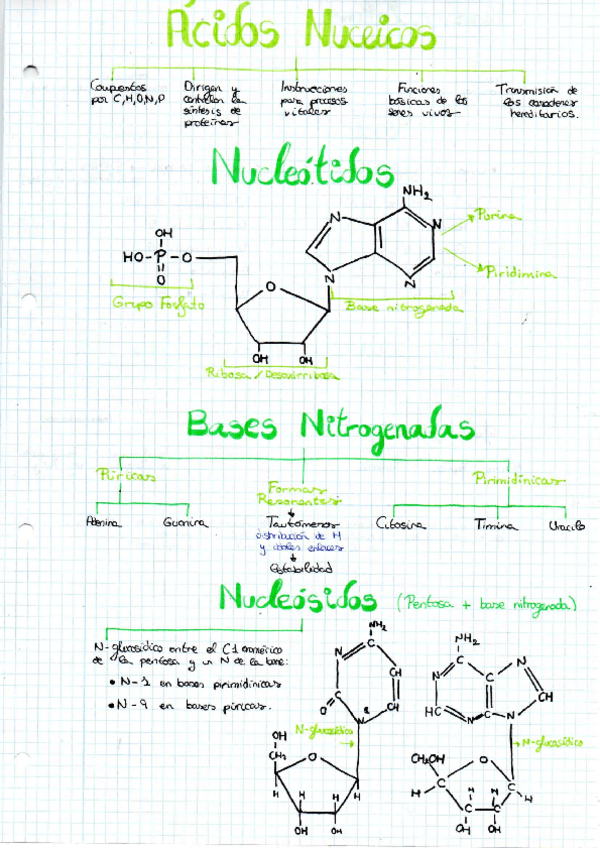 Ácidos Nuceicos
Compuestos
por C,H,O,N,P
Dirigen y
controlan la
síntesis de
proteínas
Instrucciones
para procesos
vitales
Funciones
básicas de los
seres vivos
Transmisión de
los caracteres
hereditarios.
Nucleótidos
NH2
N
N
N
N
Purina
Piridimina
OH
HO-P-O
O
O
Grupo Fosfato
Base nitrogenada
OH
OH
Ribosa / Desoxirribosa
Bases Nitrogenadas
Púricas
Formas
Resonantes
Pirimidínicas
Adenina
Guanina
Tautómeros
distribución de H
y dobles enlaces
estabilidad
Citosina
Timina
Uracilo
Nucleósidos (Pentosa + base nitrogenada)
N-glucosídico entre el C1 anomérico
de la pentosa y un N de la base:
• N-1 en bases pirimidínicas
• N-9 en bases púricas.
NH2
N
C
CH
C
O
N
1
CH
N-glucosídico
OH
CH2
O
H
H
H
H
OH
OH
NH2
N
C
C
N
CH
HC
N
C
N
N-glucosídico
CH2OH
O
C
C
H
H
C
C
H
H
OH
OH